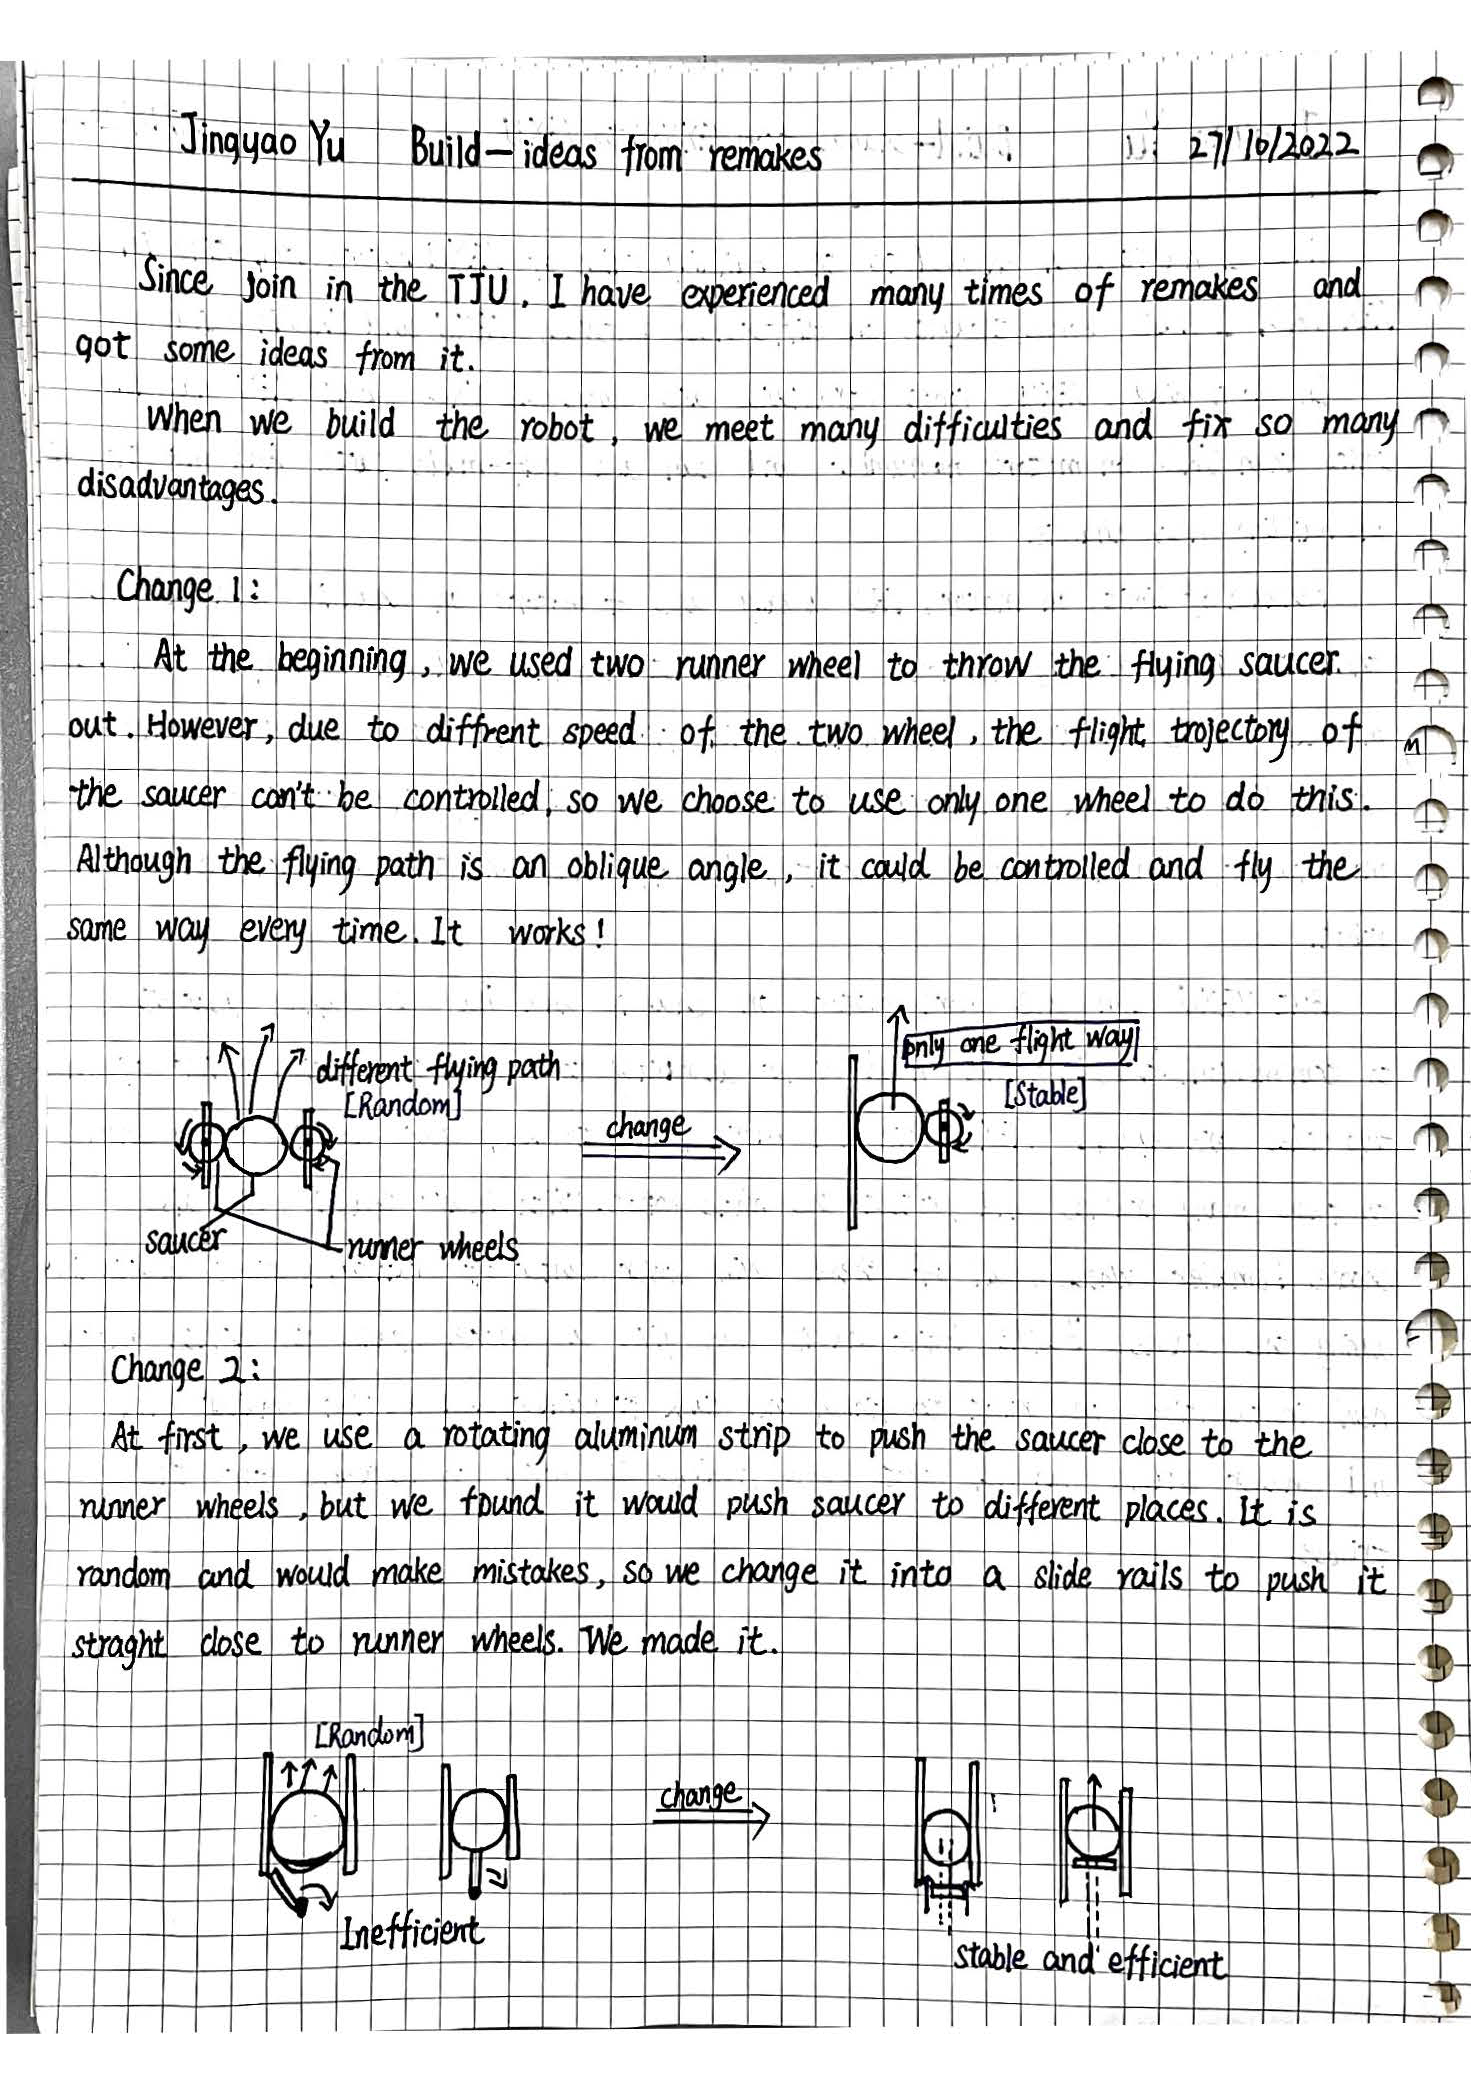 Jingyao Yu Build—ideas from remakes 27/10/2022
Since join in the TJU. I have experienced many times of remakes and
got some ideas from it.
When we build the robot, we meet many difficulties and fix so many
disadvantages.
Change 1:
At the beginning, we used two runner wheel to throw the flying saucer
out. However, due to diffrent speed of the two wheel, the flight trajectory of
the saucer can't be controlled, so we choose to use only one wheel to do this.
Although the flying path is an oblique angle, it could be controlled and fly the
same way every time. It works!
only one flight way
different flying path
[Stable]
[Random]
change
saucer
runner wheels
Change 2:
At first, we use a rotating aluminum strip to push the saucer close to the
runner wheels, but we found it would push saucer to different places. It is
random and would make mistakes, so we change it into a slide rails to push it
straght close to runner wheels. We made it.
[Random]
change
Inefficient
stable and efficient